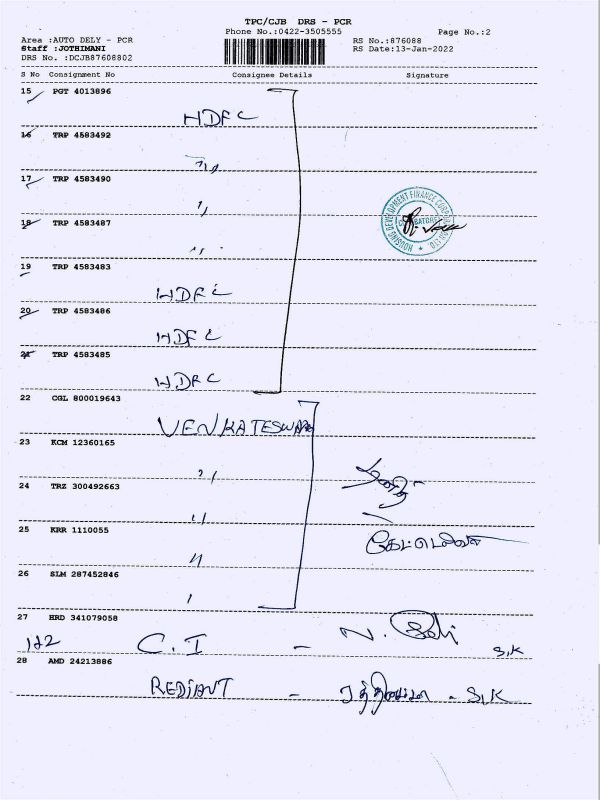 TPC/CJB DRS - PCR
Phone No.:0422-3505555 Page No.:2
Area :AUTO DELY - PCR RS No.:876088
Staff :JOTHIMANI RS Date:13-Jan-2022
DRS No. :DCJB87608802
S No Consignment No Consignee Details Signature
15 PGT 4013896
HDFC
16 TRP 4583492
17 TRP 4583490
18 TRP 4583487
HOUSING DEVELOPMENT FINANCE CORPORATION LTD.
19 TRP 4583483
HDFC
20 TRP 4583486
HDFC
21 TRP 4583485
HDFC
22 CGL 800019643
VENKATESWARA
23 KCM 12360165
24 TRZ 300492663
25 KRR 1110055
26 SLM 287452846
27 HRD 341079058
C. I - N. S/K
28 AMD 24213886
REDIANT - S/K